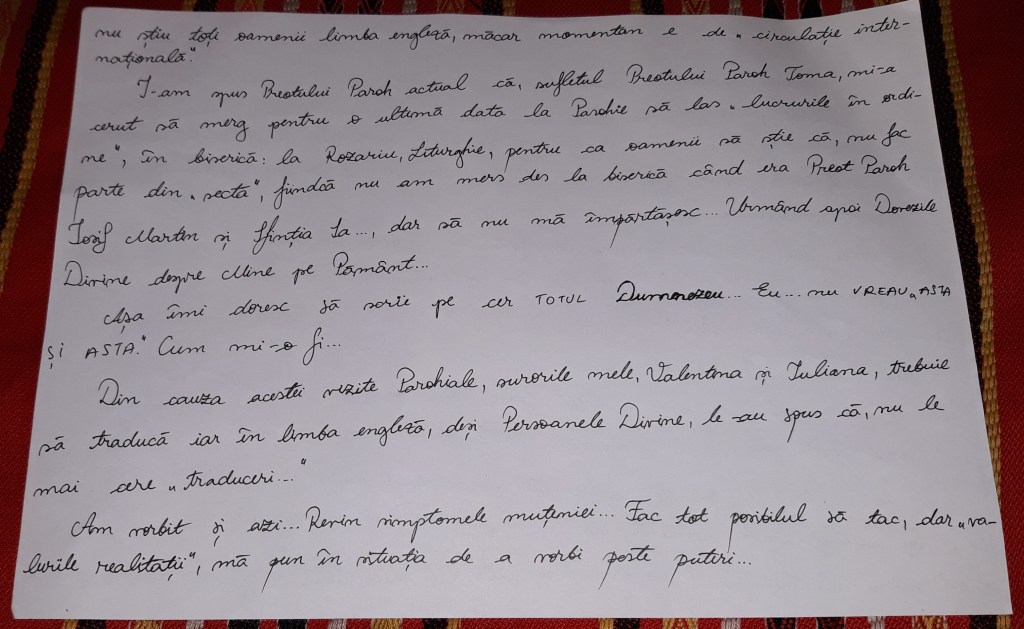 nu știu toți oamenii limba engleză, măcar momentan e de „circulație inter-
națională."
I-am spus Preotului Paroh actual că, sufletul Preotului Paroh Toma, mi-a
cerut să merg pentru o ultimă data la Parohie să las „lucrurile în ordi-
ne", în biserică: la Rozariu, Liturghie, pentru ca oamenii să știe că, nu fac
parte din „secta", fiindcă nu am mers des la biserică când era Preot Paroh
Iosif Martin și Sfinția Sa..., dar să nu mă împărtășesc... Urmând apoi Dovezile
Divine despre Mine pe Pământ...
Așa îmi doresc să scrie pe cer TOTUL Dumnezeu... Eu... nu VREAU „ASTA
ȘI ASTA." Cum mi-o fi...
Din cauza acestei vizite Parohiale, surorile mele, Valentina și Iuliana, trebuie
să traducă iar în limba engleză, deși Persoanele Divine, le-au spus că, nu le
mai cere „traduceri..."
Am vorbit și azi... Revin simptomele muțeniei... Fac tot posibilul să tac, dar „va-
lurile realității", mă pun în situația de a vorbi peste puteri...